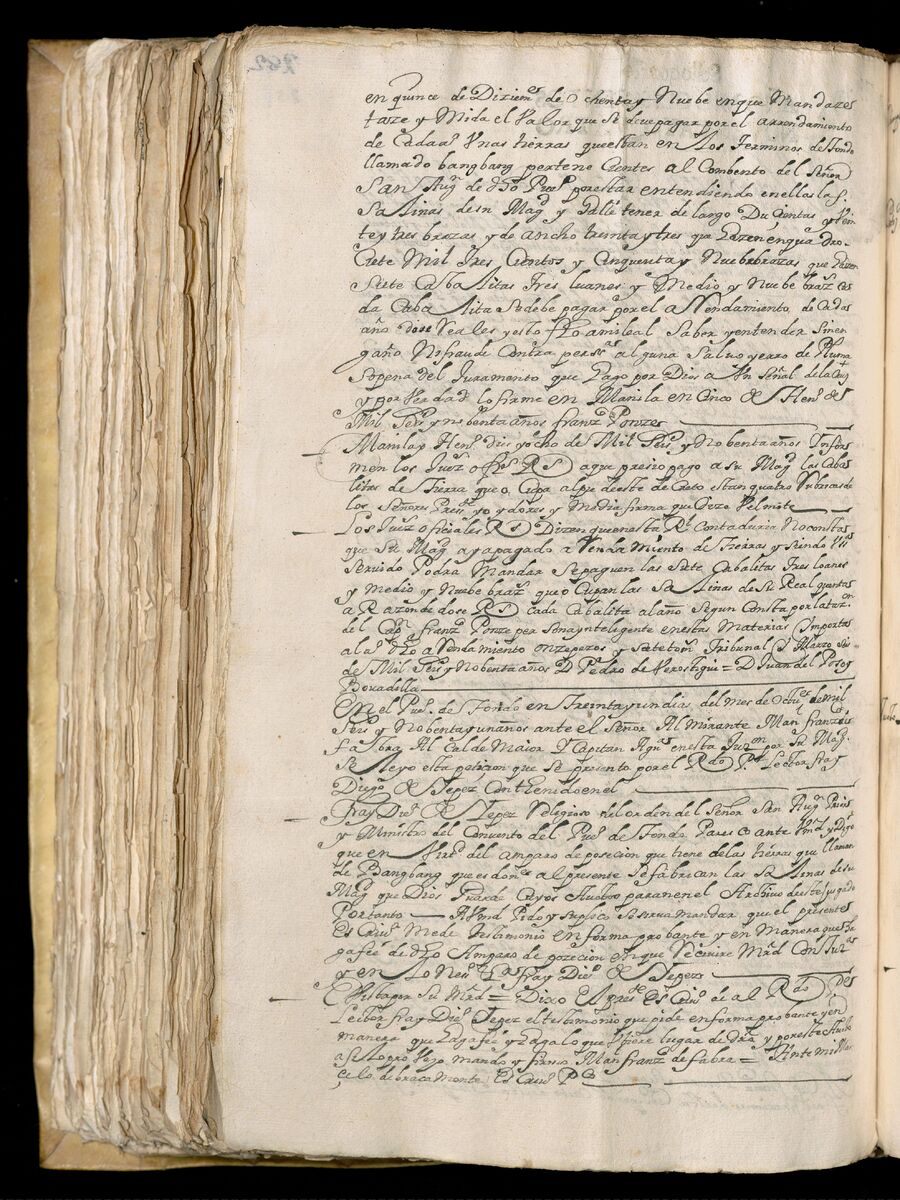 en quince de Diziem^e de Ochenta y Nuebe en que Manda zes
taze y Mida el Valor que Se deve pagar por el arrendamiento
de Cada a^o Vnas tierras que estan en Los Terminos de tondo
llamado bangbang pertene Cientes al Combento del Señor
San Aug^n de dho Pue^o por estar entendiendo en ellas las
Salinas de su Mag^d y Halle tener de largo Du Cientas y Vein
te y tres brazas y de ancho treinta y tres que hazen en qua dro
Ciete Mil Tres Cientos y Cinquenta y Nuebe brazas que hazen
Siete Caba litas Tres luanes y Medio y Nuebe braz^s Ca
da Caba lita Se debe pagar por el a Rendamiento de Cada
año dose Reales y esto fho a mi leal Saber y entender Sin en
gaño Ni fraude Contra pers^a alguna Saluo yerro de Pluma
so pena del Juramento que hago por Dios a Vn Señal de la Cruz
y por Verdad lo firme en Manila en Cinco de Hen^o de
Mil Seis^s y nobenta años fran^co Ponze
Manila y Hen^o dies y ocho de Mil Seis^s y Nobenta años Ynfor
men los Juez^s ofi^s R^s a que presio pago a Su Mag^d las Caba
litas de tierra que o Cupa al pie de este de Creto estan quatro Rubricas de
los Señores Pres^te yo y dores y Media firma que dize Velmote
Los Juez^s oficiales R^s Dizen que en esta R^l Contaduria No consta
que Su Mag^d aya pagado a Renda Miento de tierras y Siendo V^s
Servido Podra Mandar Se paguen las Siete Cabalitas Tres loanes
y Medio y Nuebe braz^s que o Cupan las Salinas de Su Real quenta
a Razon de dose R^s cada Cabalita al año Segun Consta por la taz^on
del Cap^n fran^co Ponze per sona ynteligente en estas Materias Ymporta
al a^o dho a Rendamiento onze pezos y siete tom^s Tribunal y Marzo Seis
de Mil Seis^s y Nobenta años D Pedro de Verostigui = D Juan del Poso y
Bouadilla
En el Pue^o de tondo en Treinta y un dia del mes de Octu^e de mil
Seis^s y Nobenta y un años ante el Señor Al Mirante Man^l franz^co de
fabra Alcalde Maior Y Capitan Agu^a en esta Jur^on por Su Mag^d
Se Leyo esta peticion que Se presento por el R^do P^e Lector fray
Diego de Yepez Conthenido en el
Fray Die^o de Yepez Religioso del orden del Señor San Aug^n Prior
y Ministro del Convento del Pue^o de tondo Pares Co ante Vm^d y Digo
que en Virt^d del amparo de posecion que tiene de las tierras que llaman
de Bangbang que es don^e al presente Se fabrican las Salinas de su
Mag^d que Dios Guarde Cuyos Autos paran en el Archivo de este Juzgado
Por tanto — A Vmd Pido y Suplico Se sirva mandar que el presente
Es Criu^o Me de Testimonio en forma pro bante y en Manera que ha
ga fee de dho Amparo de pozecion en que Recivire Mrd Con Just^a
y en Lo Nes^o fray Die^o de Yepez
E Vista por Su Mrd = Dixo Al pres^te Es Criu^o de al R^do P^e
Lector fray Die^o Yepez el testimonio que pide en forma pro bante y en
manera que haga fee y haga lo que Vbiere lugar de dr^o y por este Auto
asi lo pro Veyo mando y firmo Man^l franz^co de fabra = Ante mi Mar
celo de bracamonte Es Criu^o P^co